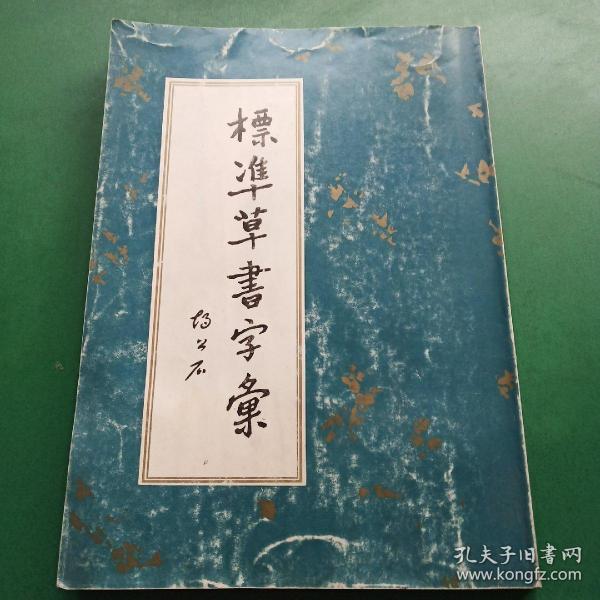 標準草書字彙
胡公石
孔夫子旧書网
www.kongfz.com